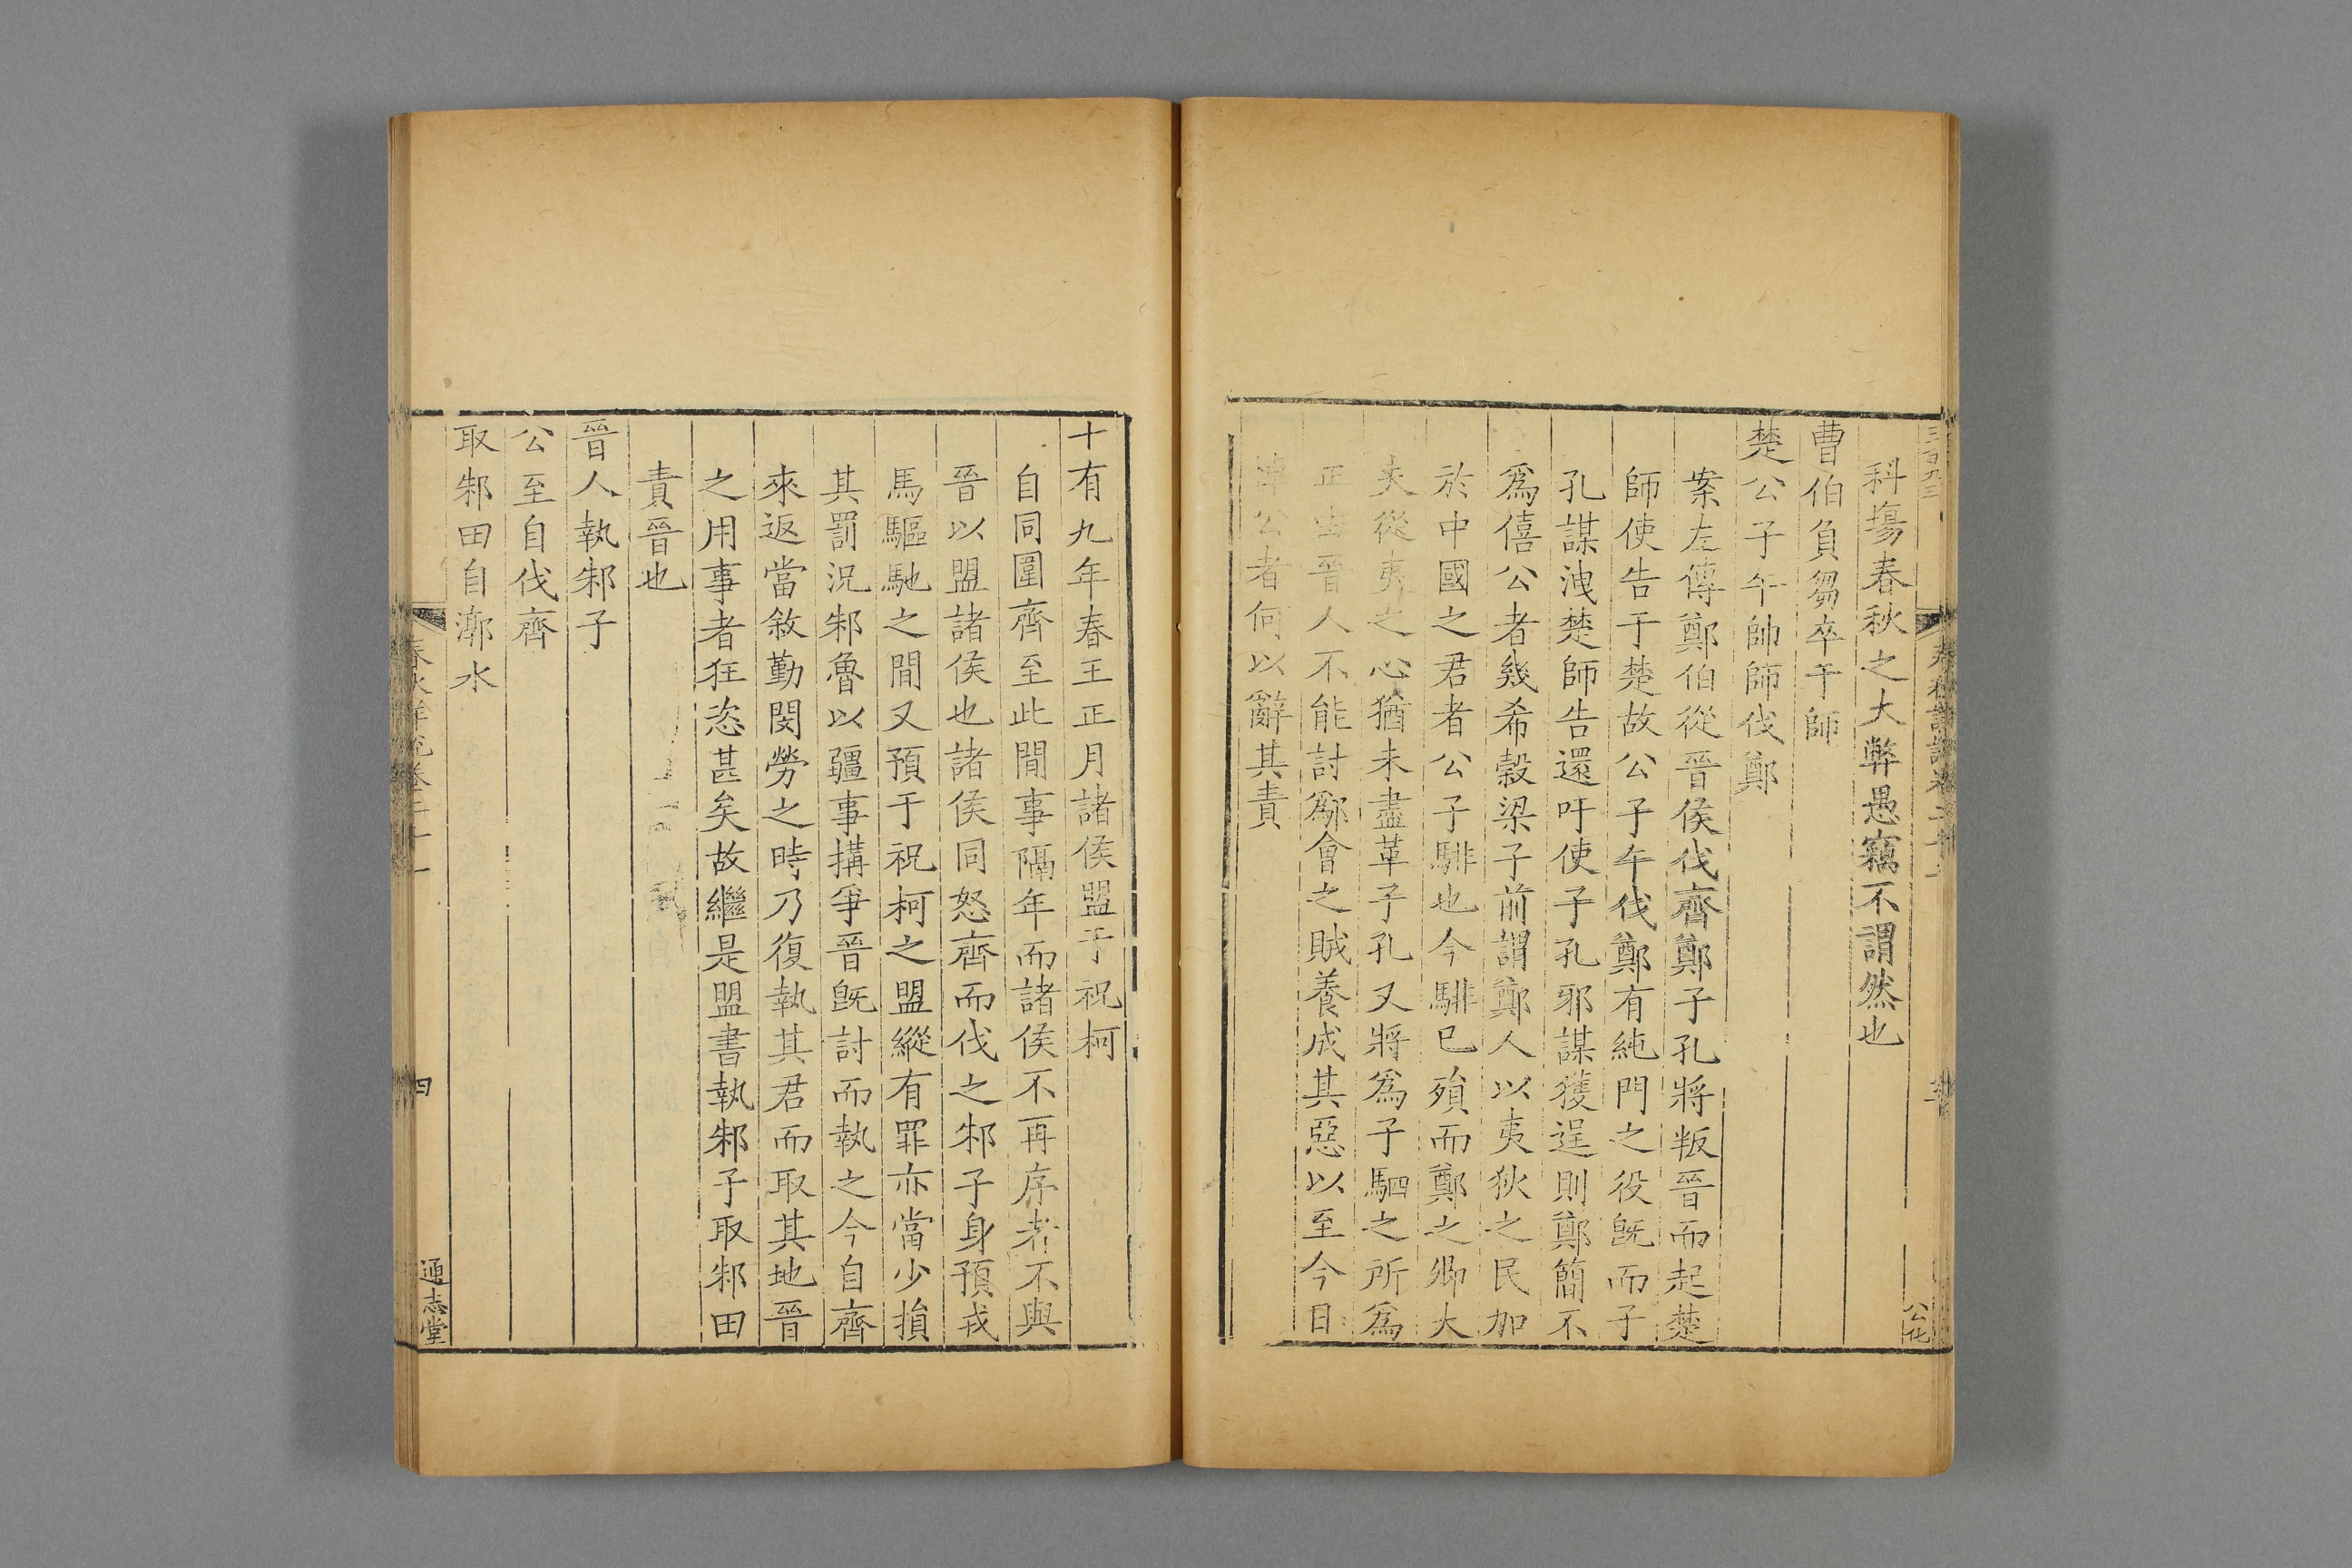 科塲春秋之大弊愚竊不謂然也
曹伯負芻卒于師
楚公子午帥師伐鄭
案左傳鄭伯從晉侯伐齊鄭子孔將叛晉而起楚
師使告于楚故公子午伐鄭有純門之役旣而子
孔謀洩楚師告還吁使子孔邪謀獲逞則鄭簡不
爲僖公者幾希糓梁子前謂鄭人以夷狄之民加
於中國之君者公子騑也今騑已殞而鄭之卿大
夫從夷之心猶未盡革子孔又將爲子駟之所爲
正由晉人不能討鄬會之賊養成其惡以至今日
悼公者何以辭其責
十有九年春王正月諸侯盟于祝柯
自同圍齊至此間事隔年而諸侯不再序者不與
晉以盟諸侯也諸侯同怒齊而伐之邾子身預戎
馬驅馳之間又預于祝柯之盟縱有罪亦當少損
其罰況邾魯以疆事搆爭晉旣討而執之今自齊
來返當敘勤閔勞之時乃復執其君而取其地晉
之用事者狂恣甚矣故繼是盟書執邾子取邾田
責晉也
晉人執邾子
公至自伐齊
取邾田自漷水
春秋詳說卷二十一
四
通志堂